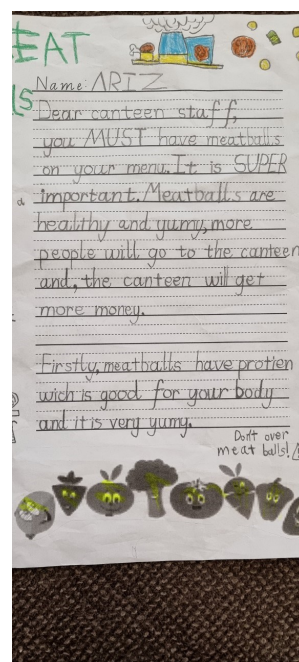 EAT
LS
Name: ARIZ
Dear canteen staff,
you MUST have meatballs
on your menu. It is SUPER
important. Meatballs are
healthy and yumy, more
people will go to the canteen
and, the canteen will get
more money.
Firstly, meatballs have protien
wich is good for your body
and it is very yumy.
Don't over
meat balls!